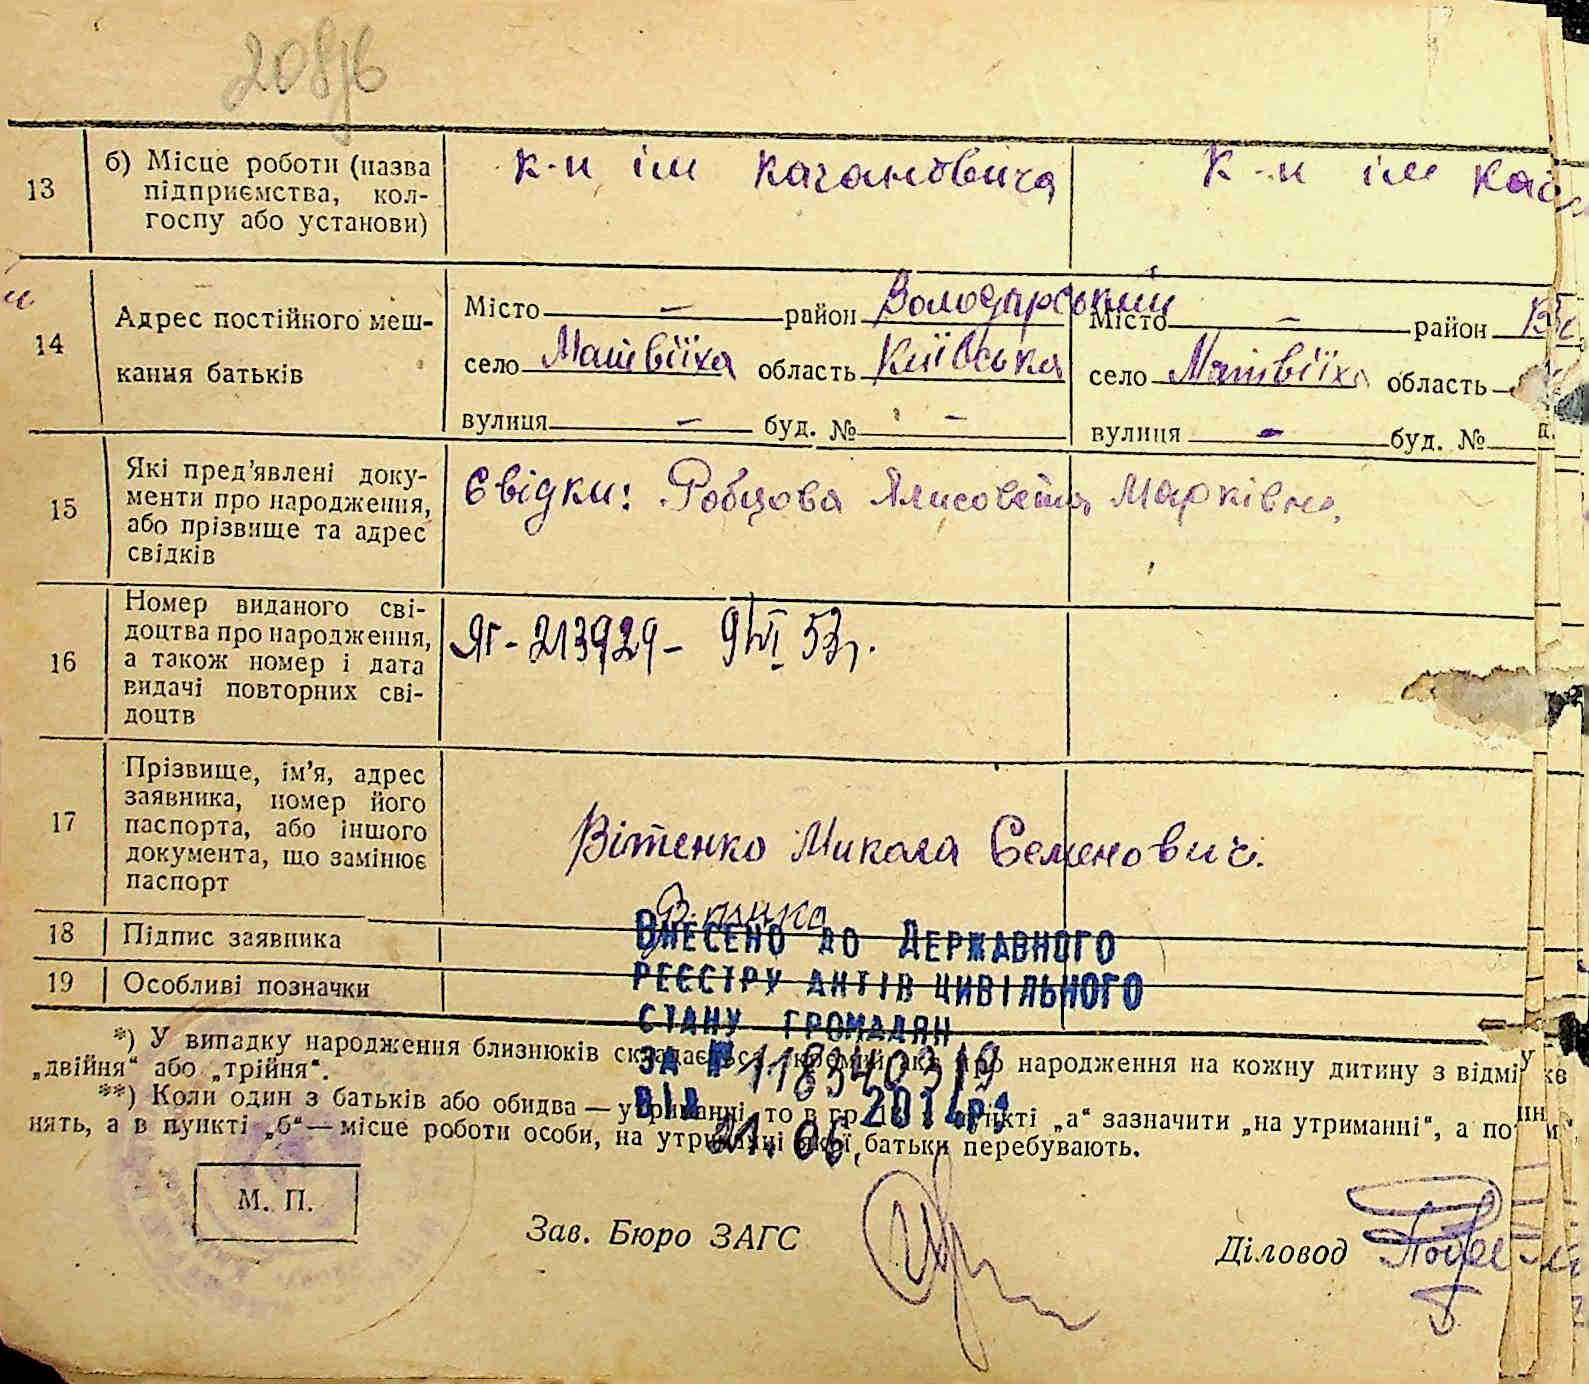 208/6
13
б) Місце роботи (назва
підприємства, кол-
госпу або установи)
к-п ім Кагановича
к-п ім
14
Адрес постійного меш-
кання батьків
Місто — район Володарський
село Матвіїха область Київська
вулиця — буд. № —
Місто — район
село Матвіїха область
вулиця — буд. №
15
Які пред'явлені доку-
менти про народження,
або прізвище та адрес
свідків
Свідки: Робцова Ялисовета Марківна.
16
Номер виданого сві-
доцтва про народження,
а також номер і дата
видачі повторних сві-
доцтв
ЯГ-213929- 9/VI 53р.
17
Прізвище, ім'я, адрес
заявника, номер його
паспорта, або іншого
документа, що замінює
паспорт
Вітенко Микола Семенович.
18
Підпис заявника
19
Особливі позначки
Внесено до Державного
реєстру актів цивільного
стану громадян
за № 118340319
від 21.06. 2014р.
*) У випадку народження близнюків складається про народження на кожну дитину з
„двійня“ або „трійня“.
**) Коли один з батьків або обидва — утриманні, то в пункті „а“ зазначити „на утриманні“, а
нять, а в пункті „б“ — місце роботи особи, на утриманні якої батьки перебувають.
М. П.
Зав. Бюро ЗАГС
Діловод